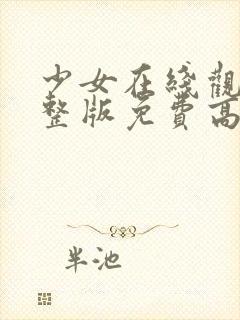 少女在綫觀
整版免費高
半池